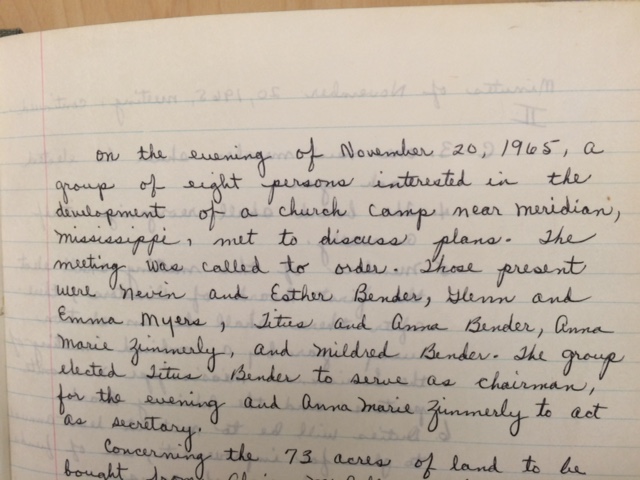 on the evening of November 20, 1965, a
group of eight persons interested in the
development of a church camp near Meridian,
Mississippi, met to discuss plans. The
meeting was called to order. Those present
were Nevin and Esther Bender, Glenn and
Emma Myers, Titus and Anna Bender, Anna
Marie Zimmerly, and Mildred Bender. The group
elected Titus Bender to serve as chairman,
for the evening and Anna Marie Zimmerly to act
as secretary.
Concerning the 73 acres of land to be
bought from